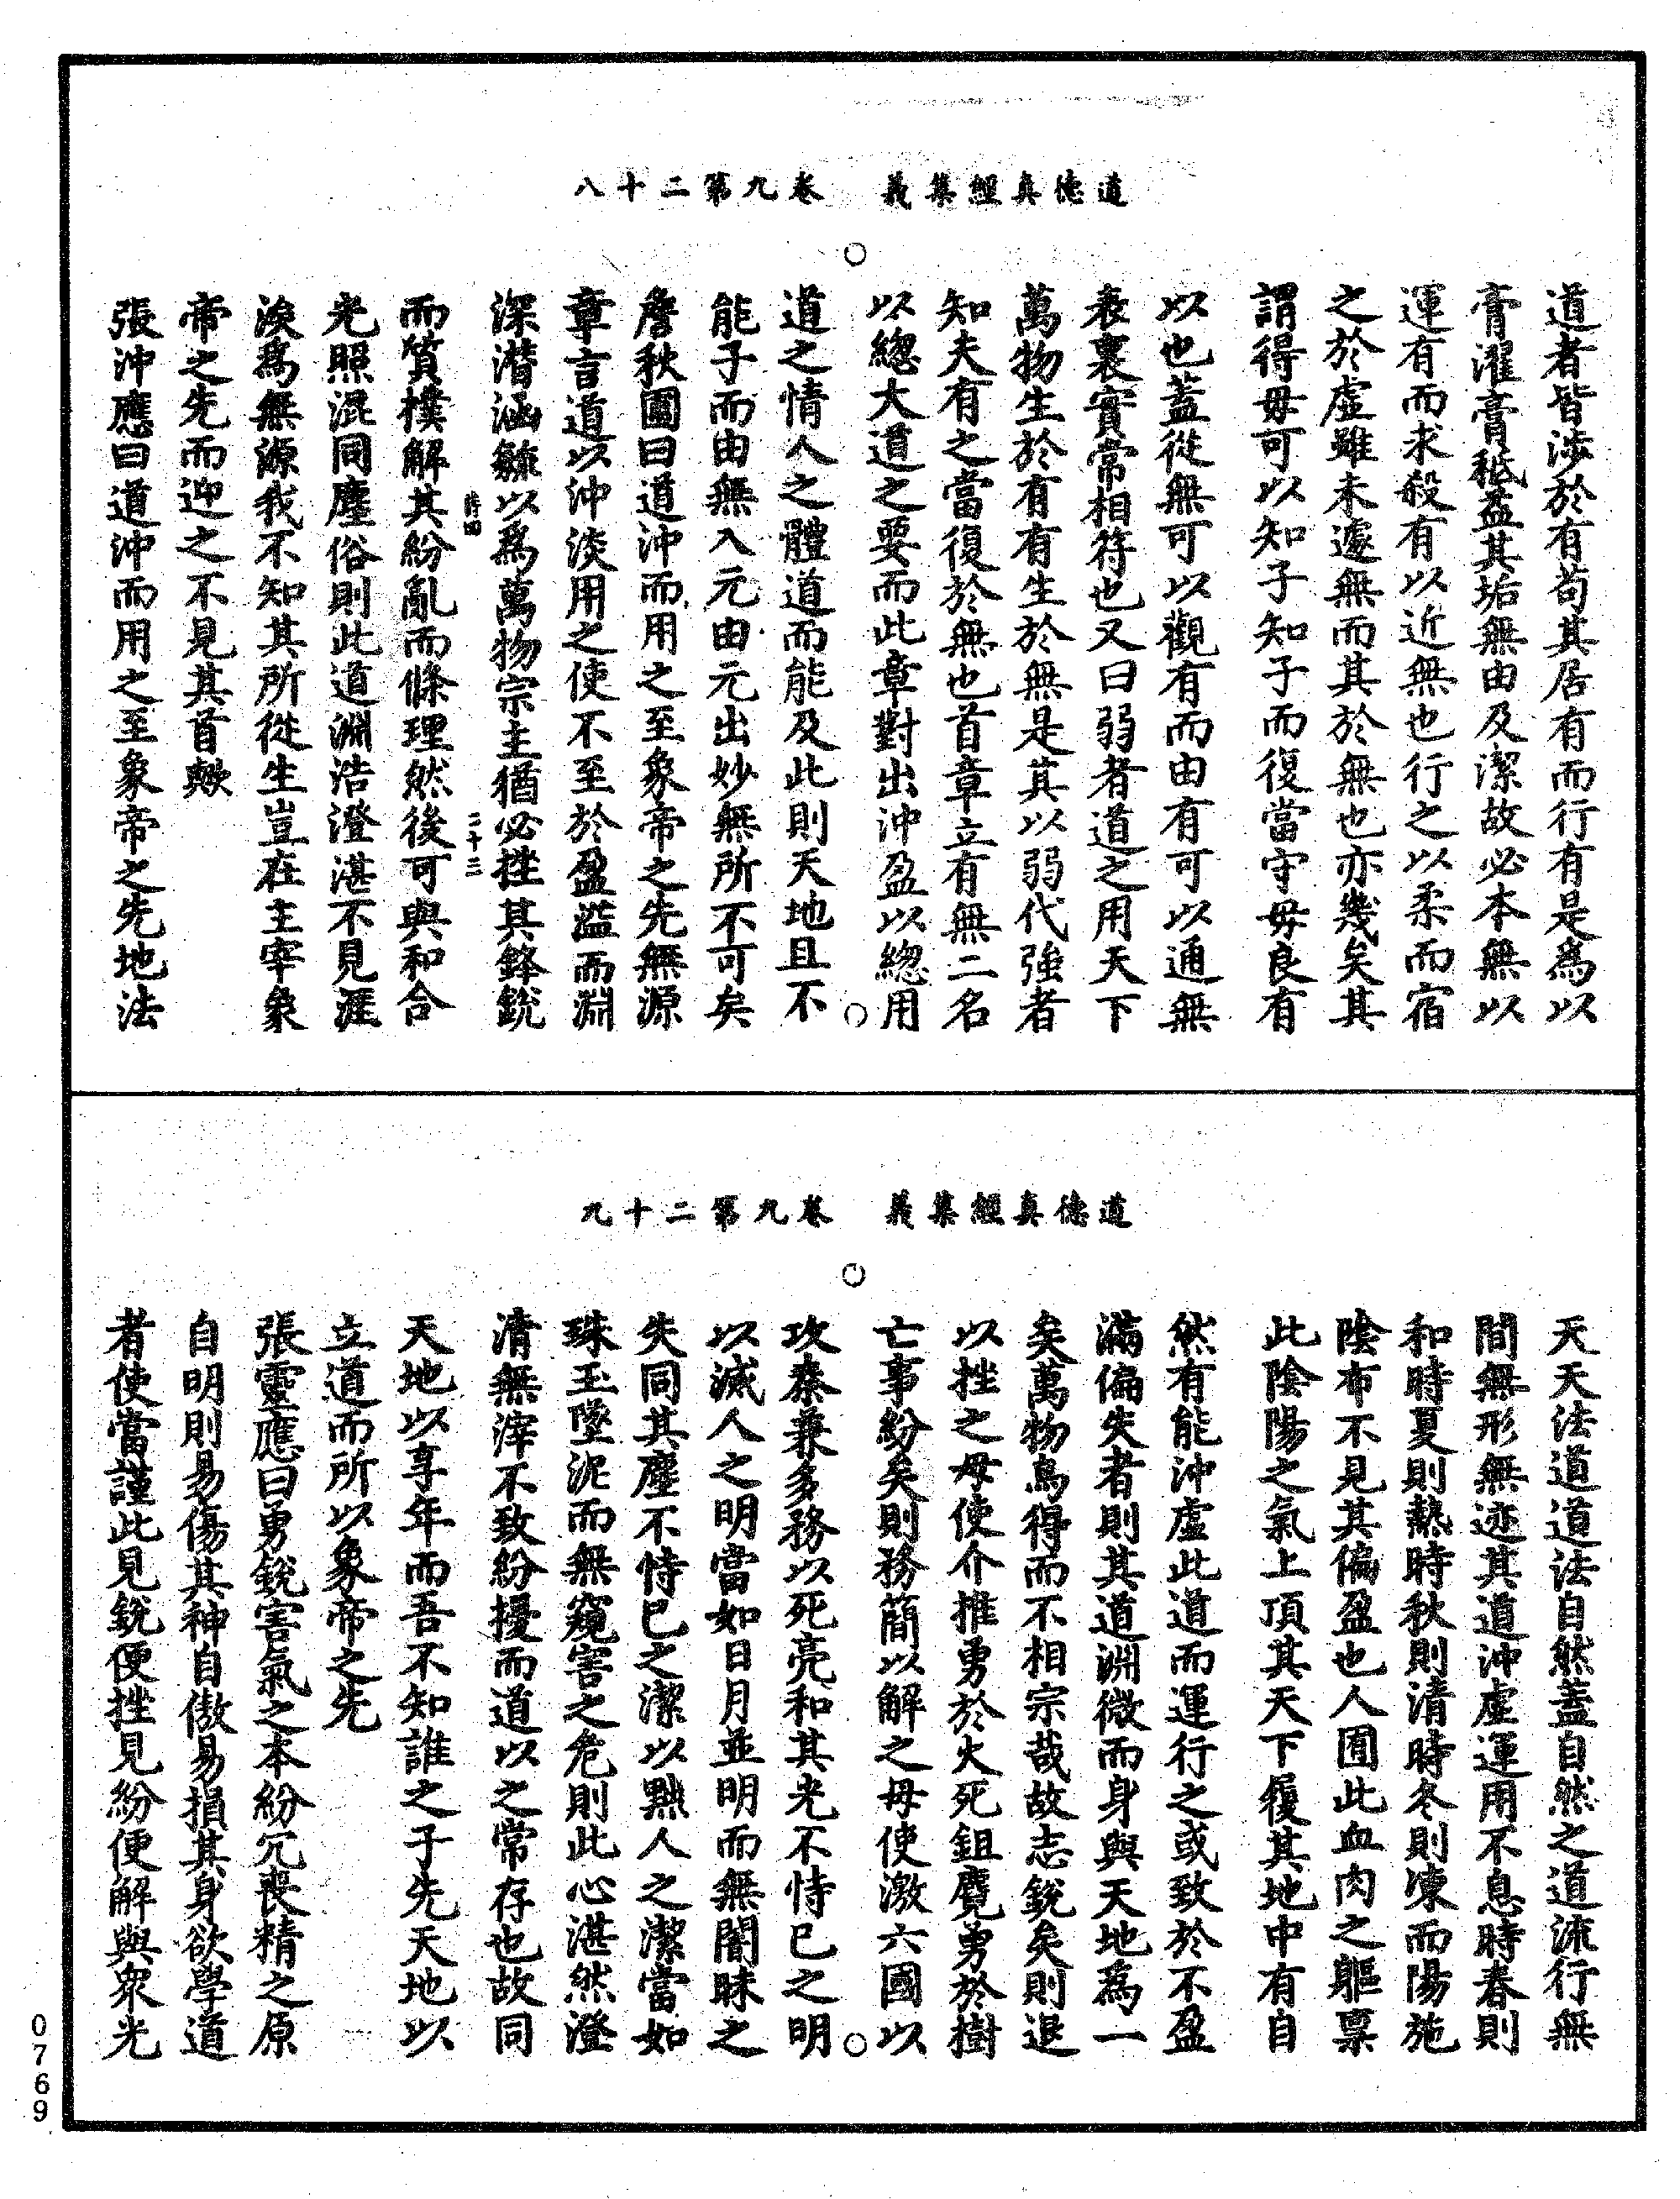 道德真經集義　卷九第二十八
道者皆涉於有苟其居有而行有是爲以
膏濯膏秪益其垢無由及潔故必本無以
運有而求殺有以近無也行之以柔而宿
之於虛雖未遽無而其於無也亦幾矣其
謂得毋可以知子知子而復當守毋良有
以也蓋從無可以觀有而由有可以通無
表裏實常相符也又曰弱者道之用天下
萬物生於有有生於無是其以弱代強者
知夫有之當復於無也首章立有無二名
以緫大道之要而此章對出沖盈以緫用
道之情人之體道而能及此則天地且不
能子而由無入元由元出妙無所不可矣
詹秋圃曰道沖而用之至象帝之先無源
章言道以沖淡用之使不至於盈溢而淵
深潛涵䲣以爲萬物宗主猶必挫其鋒銳
而質樸解其紛亂而條理然後可與和合
光照混同塵俗則此道淵浩澄湛不見涯
涘爲無源我不知其所從生豈在主宰象
帝之先而迎之不見其首歟
張沖應曰道沖而用之至象帝之先地法
道德真經集義　卷九第二十九
天天法道道法自然蓋自然之道流行無
間無形無迹其道沖虛運用不息時春則
和時夏則熱時秋則清時冬則凍而陽施
陰布不見其偏盈也人囿此血肉之軀禀
此陰陽之氣上頂其天下履其地中有自
然有能沖虛此道而運行之或致於不盈
滿偏失者則其道淵微而身與天地爲一
矣萬物烏得而不相宗哉故志銳矣則退
以挫之毋使介推勇於火死鉏麑勇於樹
亡事紛矣則務簡以解之毋使激六國以
攻秦兼多務以死亮和其光不恃已之明
以滅人之明當如日月並明而無闇昧之
失同其塵不恃已之潔以㸃人之潔當如
珠玉墜泥而無窺害之危則此心湛然澄
清無滓不致紛擾而道以之常存也故同
天地以享年而吾不知誰之子先天地以
立道而所以象帝之先
張靈應曰勇銳害氣之本紛冗喪精之原
自明則易傷其神自傲易損其身欲學道
者使當謹此見銳便挫見紛便解與衆光
0769